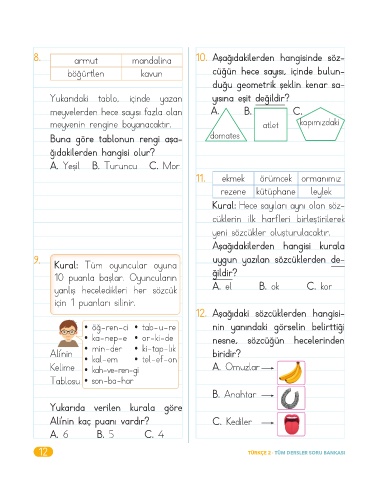 8.
armut mandalina
böğürtlen kavun
Yukarıdaki tablo, içinde yazan
meyvelerden hece sayısı fazla olan
meyvenin rengine boyanacaktır.
Buna göre tablonun rengi aşa-
ğıdakilerden hangisi olur?
A. Yeşil B. Turuncu C. Mor
9.
Kural: Tüm oyuncular oyuna
10 puanla başlar. Oyuncuların
yanlış heceledikleri her sözcük
için 1 puanları silinir.
Ali'nin
Kelime
Tablosu
• öğ-ren-ci • tab-u-re
• ka-nep-e • or-ki-de
• min-der • ki-tap-lık
• kal-em • tel-ef-on
• kah-ve-ren-gi
• son-ba-har
Yukarıda verilen kurala göre
Ali'nin kaç puanı vardır?
A. 6 B. 5 C. 4
10. Aşağıdakilerden hangisinde söz-
cüğün hece sayısı, içinde bulun-
duğu geometrik şeklin kenar sa-
yısına eşit değildir?
A. B. C.
domates
atlet
kapımızdaki
11.
ekmek örümcek ormanımız
rezene kütüphane leylek
Kural: Hece sayıları aynı olan söz-
cüklerin ilk harfleri birleştirilerek
yeni sözcükler oluşturulacaktır.
Aşağıdakilerden hangisi kurala
uygun yazılan sözcüklerden de-
ğildir?
A. el B. ok C. kor
12. Aşağıdaki sözcüklerden hangisi-
nin yanındaki görselin belirttiği
nesne, sözcüğün hecelerinden
biridir?
A. Omuzlar →
B. Anahtar →
C. Kediler →
12
TÜRKÇE 2 - TÜM DERSLER SORU BANKASI